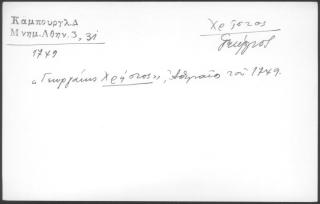 Καμπουργλ.Δ
Μνημ.Αθην. 3, 31
1749
Χρῆστος
Γεώργιος
"Γεωργάκης Χρῆστος", Ἀθηναῖο τοῦ 1749.